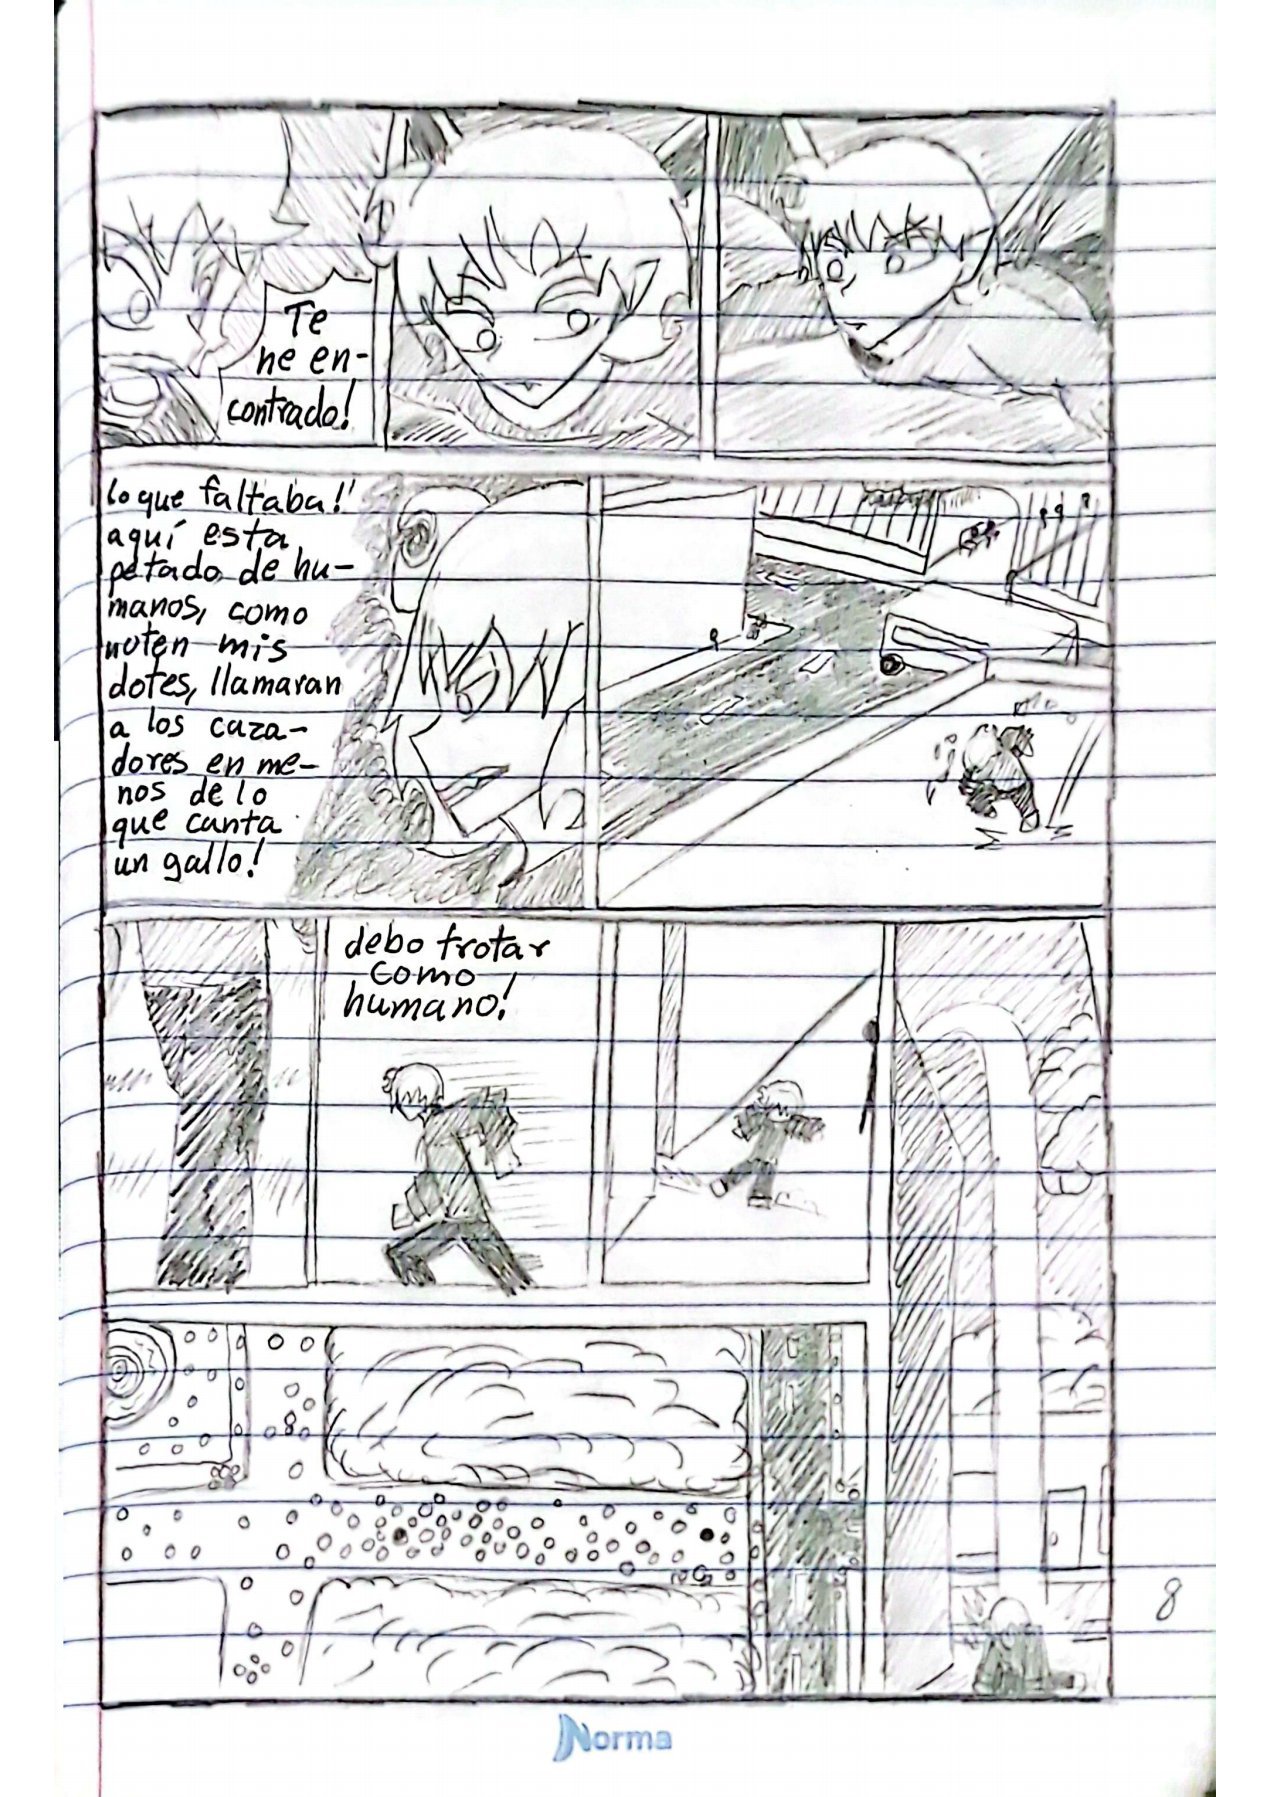 Te
he en-
contrado!
lo que faltaba!!
aquí esta
petado de hu-
manos, como
noten mis
dotes, llamaran
a los caza-
dores en me-
nos de lo
que canta
un gallo!
debo trotar
como
humano!
8
Norma